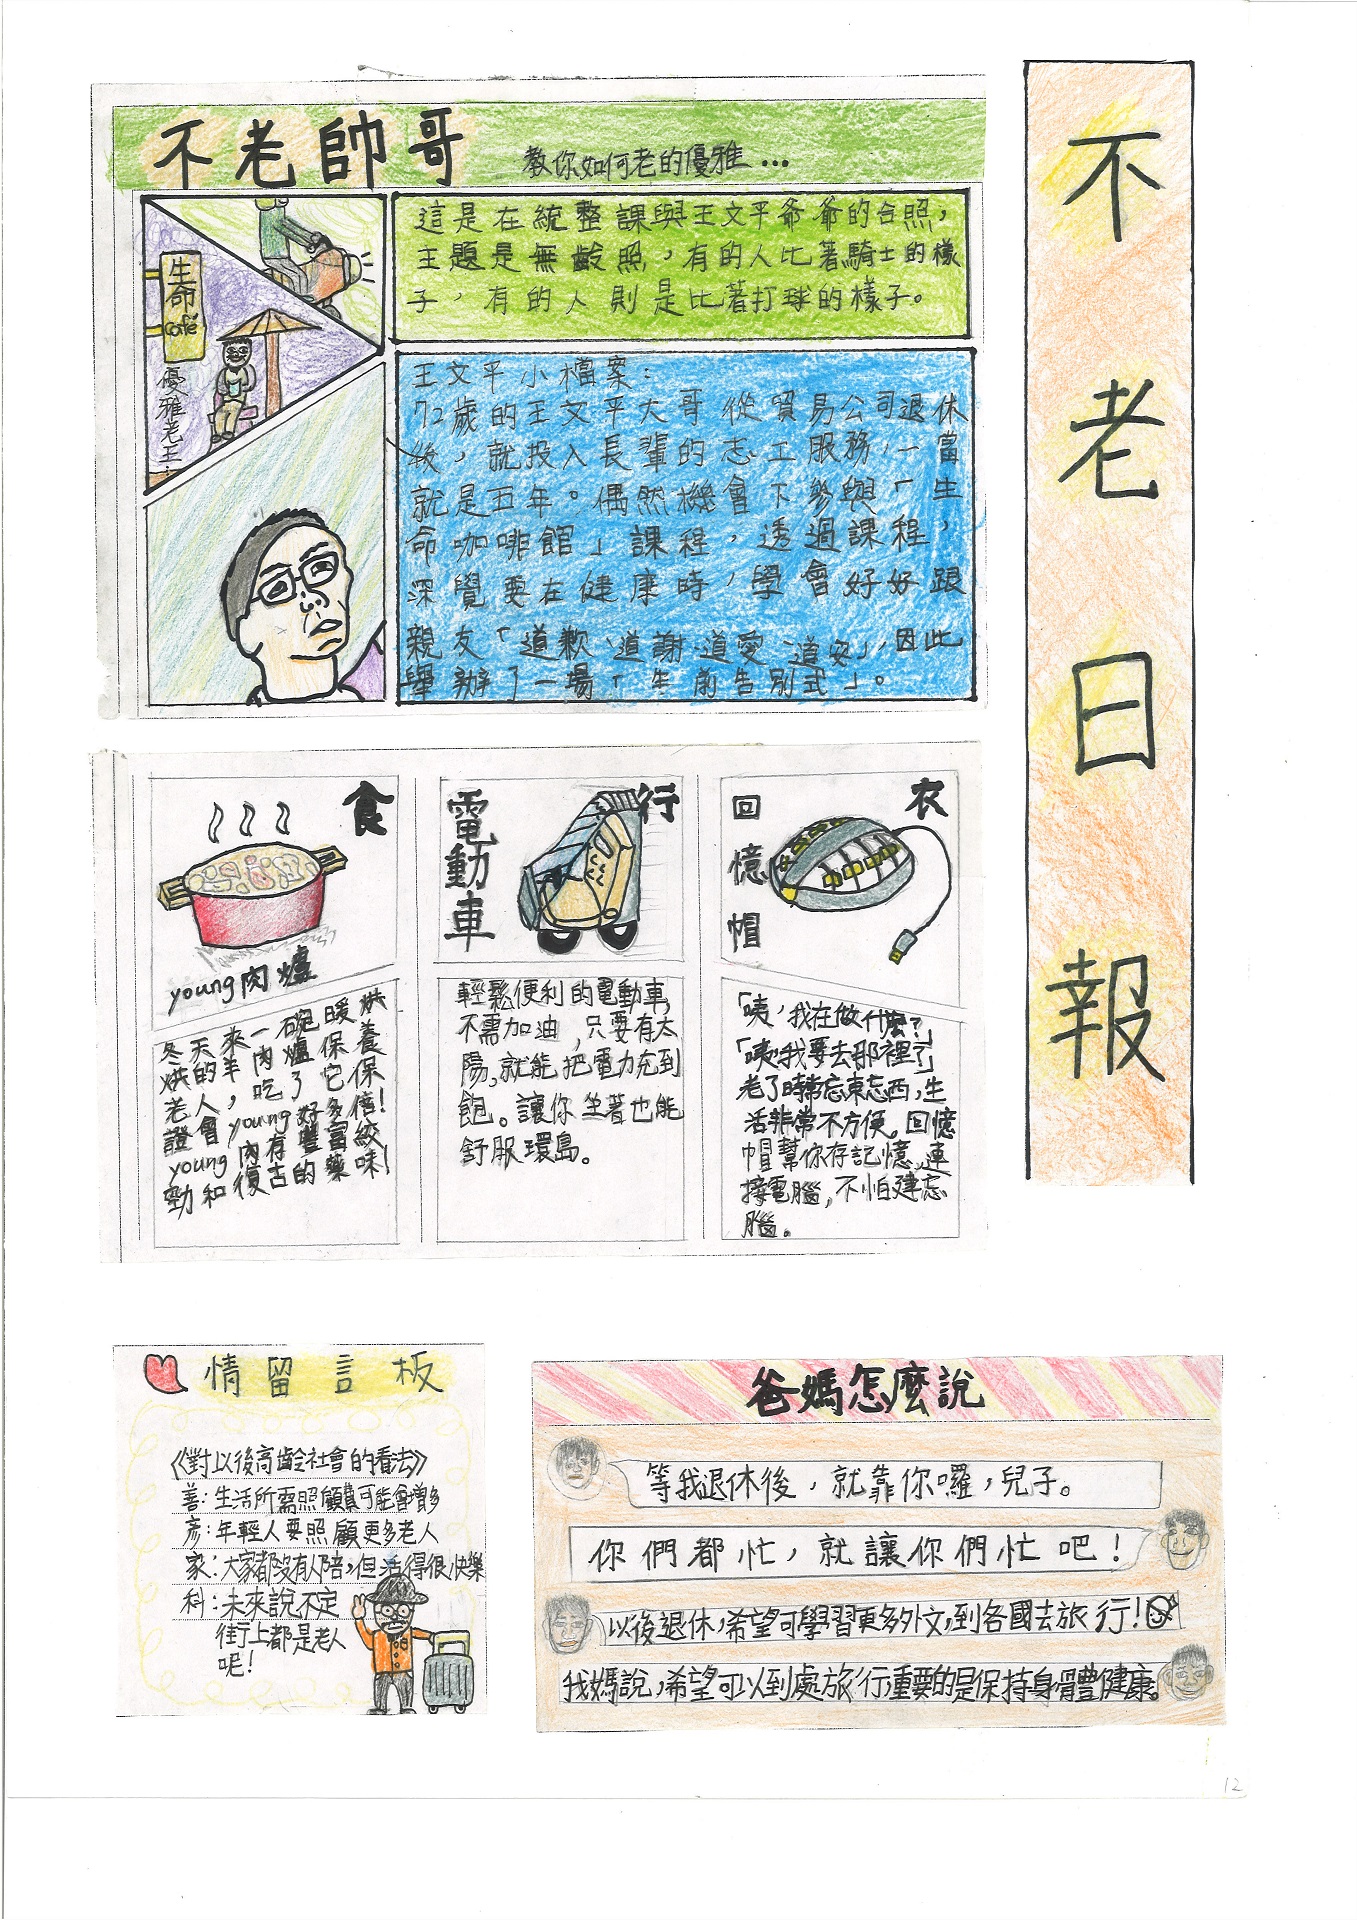 不老日報
不老帥哥 教你如何老的優雅...
生命
café
優雅老王:
這是在統整課與王文平爺爺的合照，
主題是無齡照，有的人比著騎士的樣
子，有的人則是比著打球的樣子。
王文平小檔案:
72歲的王文平大哥從貿易公司退休
後，就投入長輩的志工服務，一當
就是五年。偶然機會下參與「生
命咖啡館」課程，透過課程，
深覺要在健康時，學會好好跟
親友「道歉、道謝、道愛、道安」，因此
舉辦了一場「生前告別式」。
食
young肉爐
冬天來一碗暖烘
烘的羊肉爐保養
老人，吃了它保
證會young好多倍！
young肉存豐富絞
勁和復古的藥味！
行
電動車
輕鬆便利的電動車，
不需加油，只要有太
陽，就能把電力充到
飽。讓你坐著也能
舒服環島。
衣
回憶帽
「咦，我在做什麼？」
「咦！我要去那裡？」
老了時常忘東忘西，生
活非常不方便。回憶
帽幫你存記憶，連
接電腦，不怕建忘
腦。
情留言板
《對以後高齡社會的看法》
善：生活所需照顧員可能會增多
彥：年輕人要照顧更多老人
家：大家都沒有人陪，但活得很快樂
科：未來說不定
街上都是老人
呢！
爸媽怎麼說
等我退休後，就靠你囉，兒子。
你們都忙，就讓你們忙吧！
以後退休，希望可學習更多外文，到各國去旅行！
我媽說，希望可以到處旅行，重要的是保持身體健康。
12